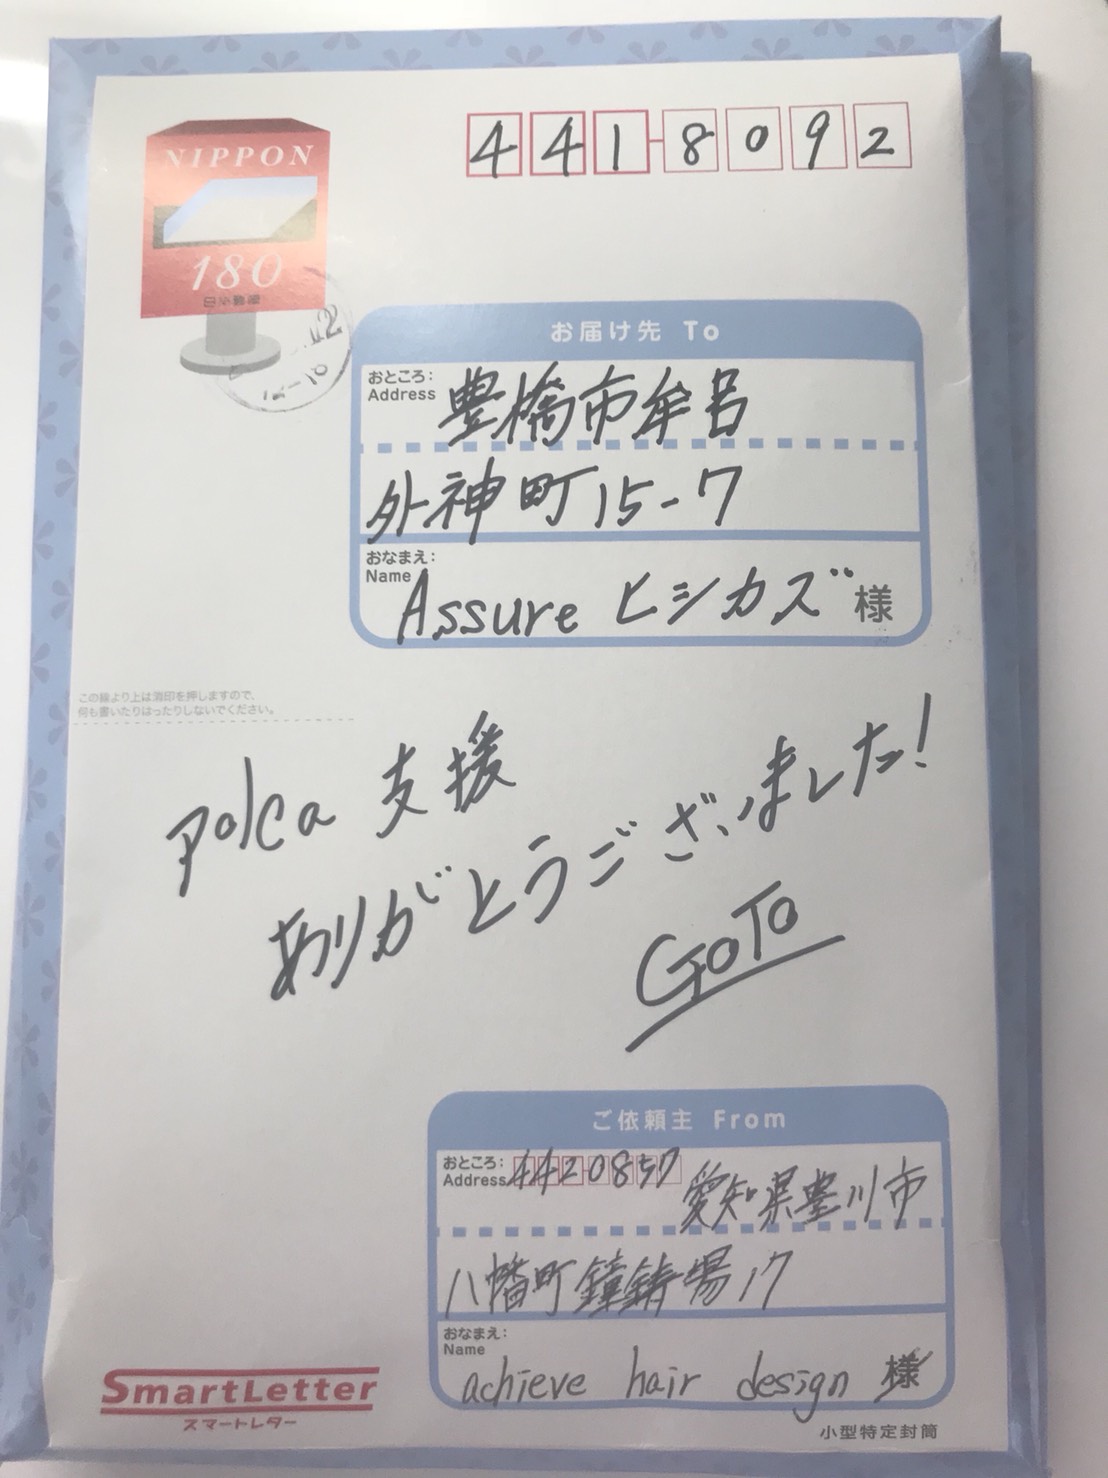 NIPPON
180
日本郵便
441-8092
お届け先 To
おところ:
Address
豊橋市牟呂
外神町15-7
おなまえ:
Name
Assure ヒシカズ 様
この線より上は消印を押しますので、
何も書いたりはったりしないでください。
Polca 支援
ありがとうございました!
GOTO
ご依頼主 From
おところ:
Address
442-0857
愛知県豊川市
八幡町鐘鋳場17
おなまえ:
Name
achieve hair design 様
SmartLetter
スマートレター
小型特定封筒